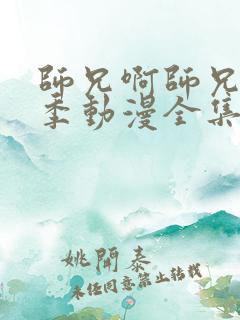 師兄啊師兄
季動漫全集
姚開泰
未经同意禁止转载